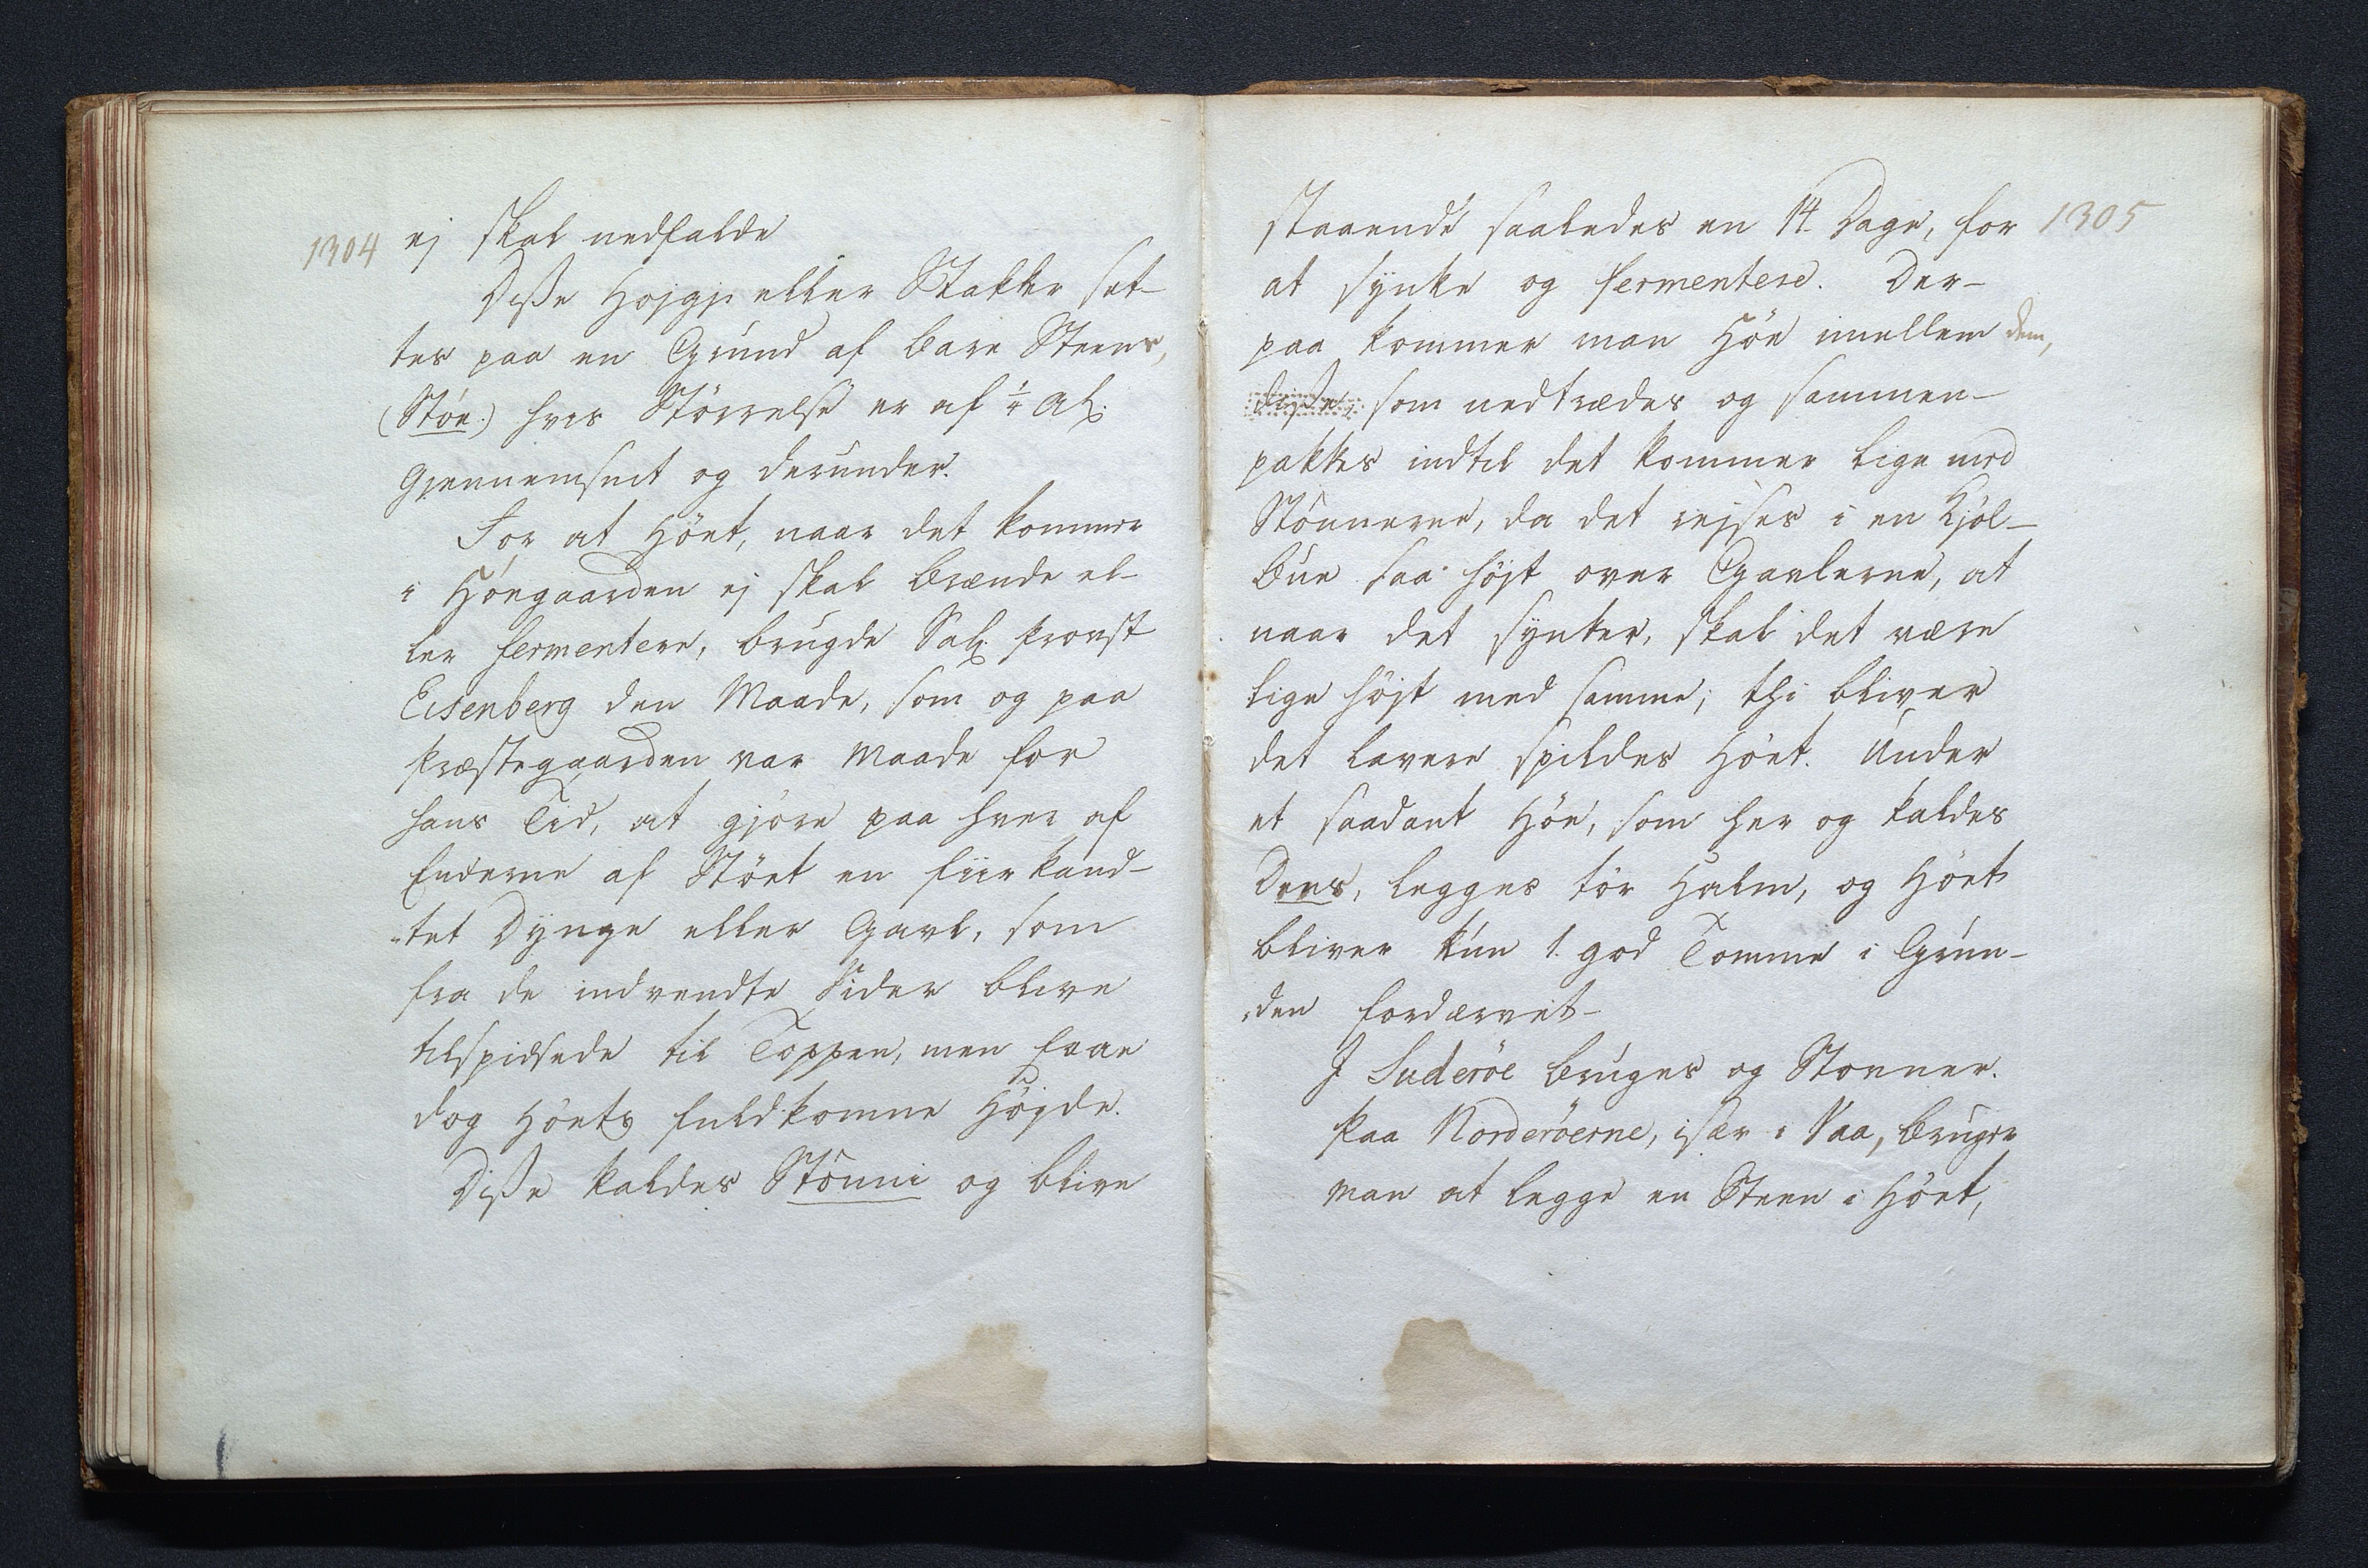 1304
ej skal nedfalde
Disse Hojgji eller Stakker set-
tes paa en Grund af bare Steene,
(Støe) hvis Størrelse er af Al:
Gjennemsnit og derunder.
For at Höet, naar det kommer
i Höegaarden ej skal brænde el-
ler fermentere, brugde Sal: Provst
Eisenberg den Maade, som og paa
Præstegaarden var Maade for
hans Tid, at gjöre paa hver af
Enderne af Stöet en fiirkand-
-tet Dynge eller Gavl, som
fra de indvendte Sider blive
tilspidsede til Toppen, men faae
dog Höets fuldkomne Höjde.
Disse kaldes Stönni og blive
1305
staaende saaledes en 14. Dage, for
at synke og fermentere. Der-
paa kommer man Höe imellem dem,
disse, som nedtrædes og sammen-
pakkes indtil det kommer lige med
Stönnerne, da det rejses i en Kjöl-
bue saa höjt over Gavlerne, at
naar det synker, skal det være
lige höjt med samme; thi bliver
det lavere spildes Höet. Under
et saadant Höe, som her og kaldes
Dens, legges tör Halm, og Höet
bliver kun 1. god Tomme i Grun-
-den fordærvet-
I Suderöe bruges og Stonner.
Paa Norderöerne, især i Vaa, bruger
man at legge en Steen i Höet,